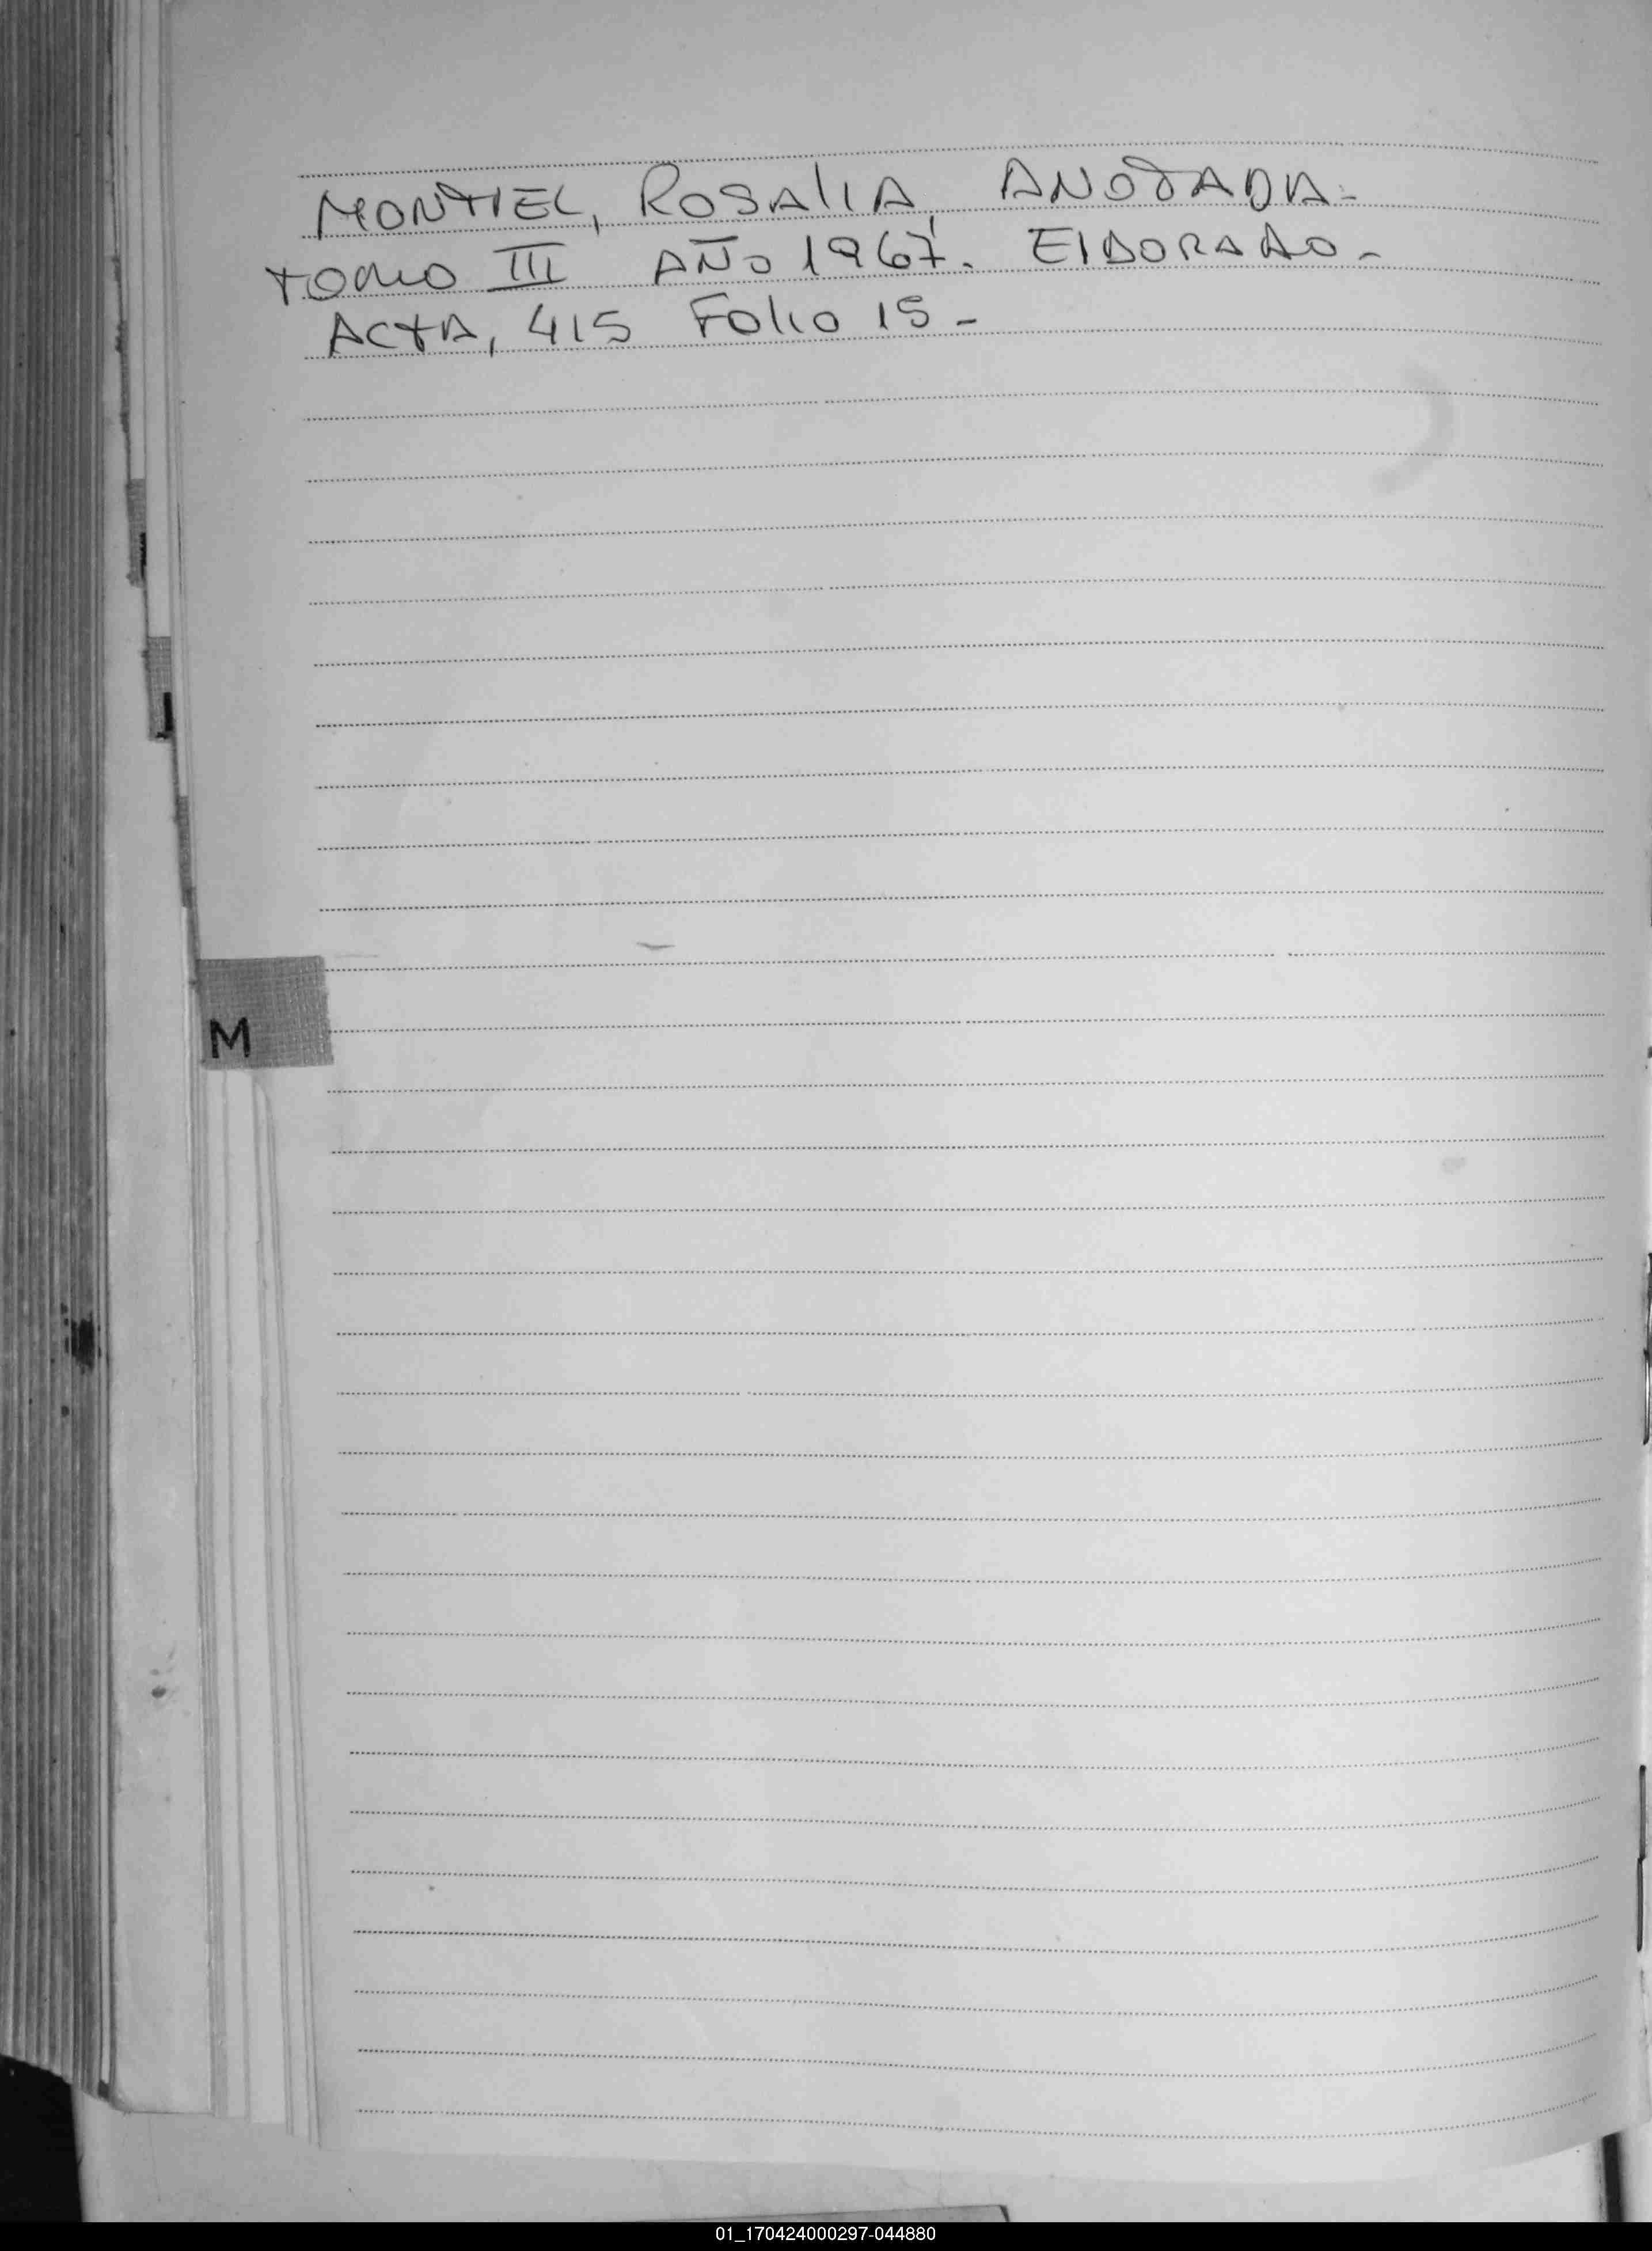 MONTIEL, ROSALIA, ANOTADA-
TOMO III AÑO 1967. ElDORADO-
ACTA, 415 Folio 15-
L
M
01_170424000297-044880